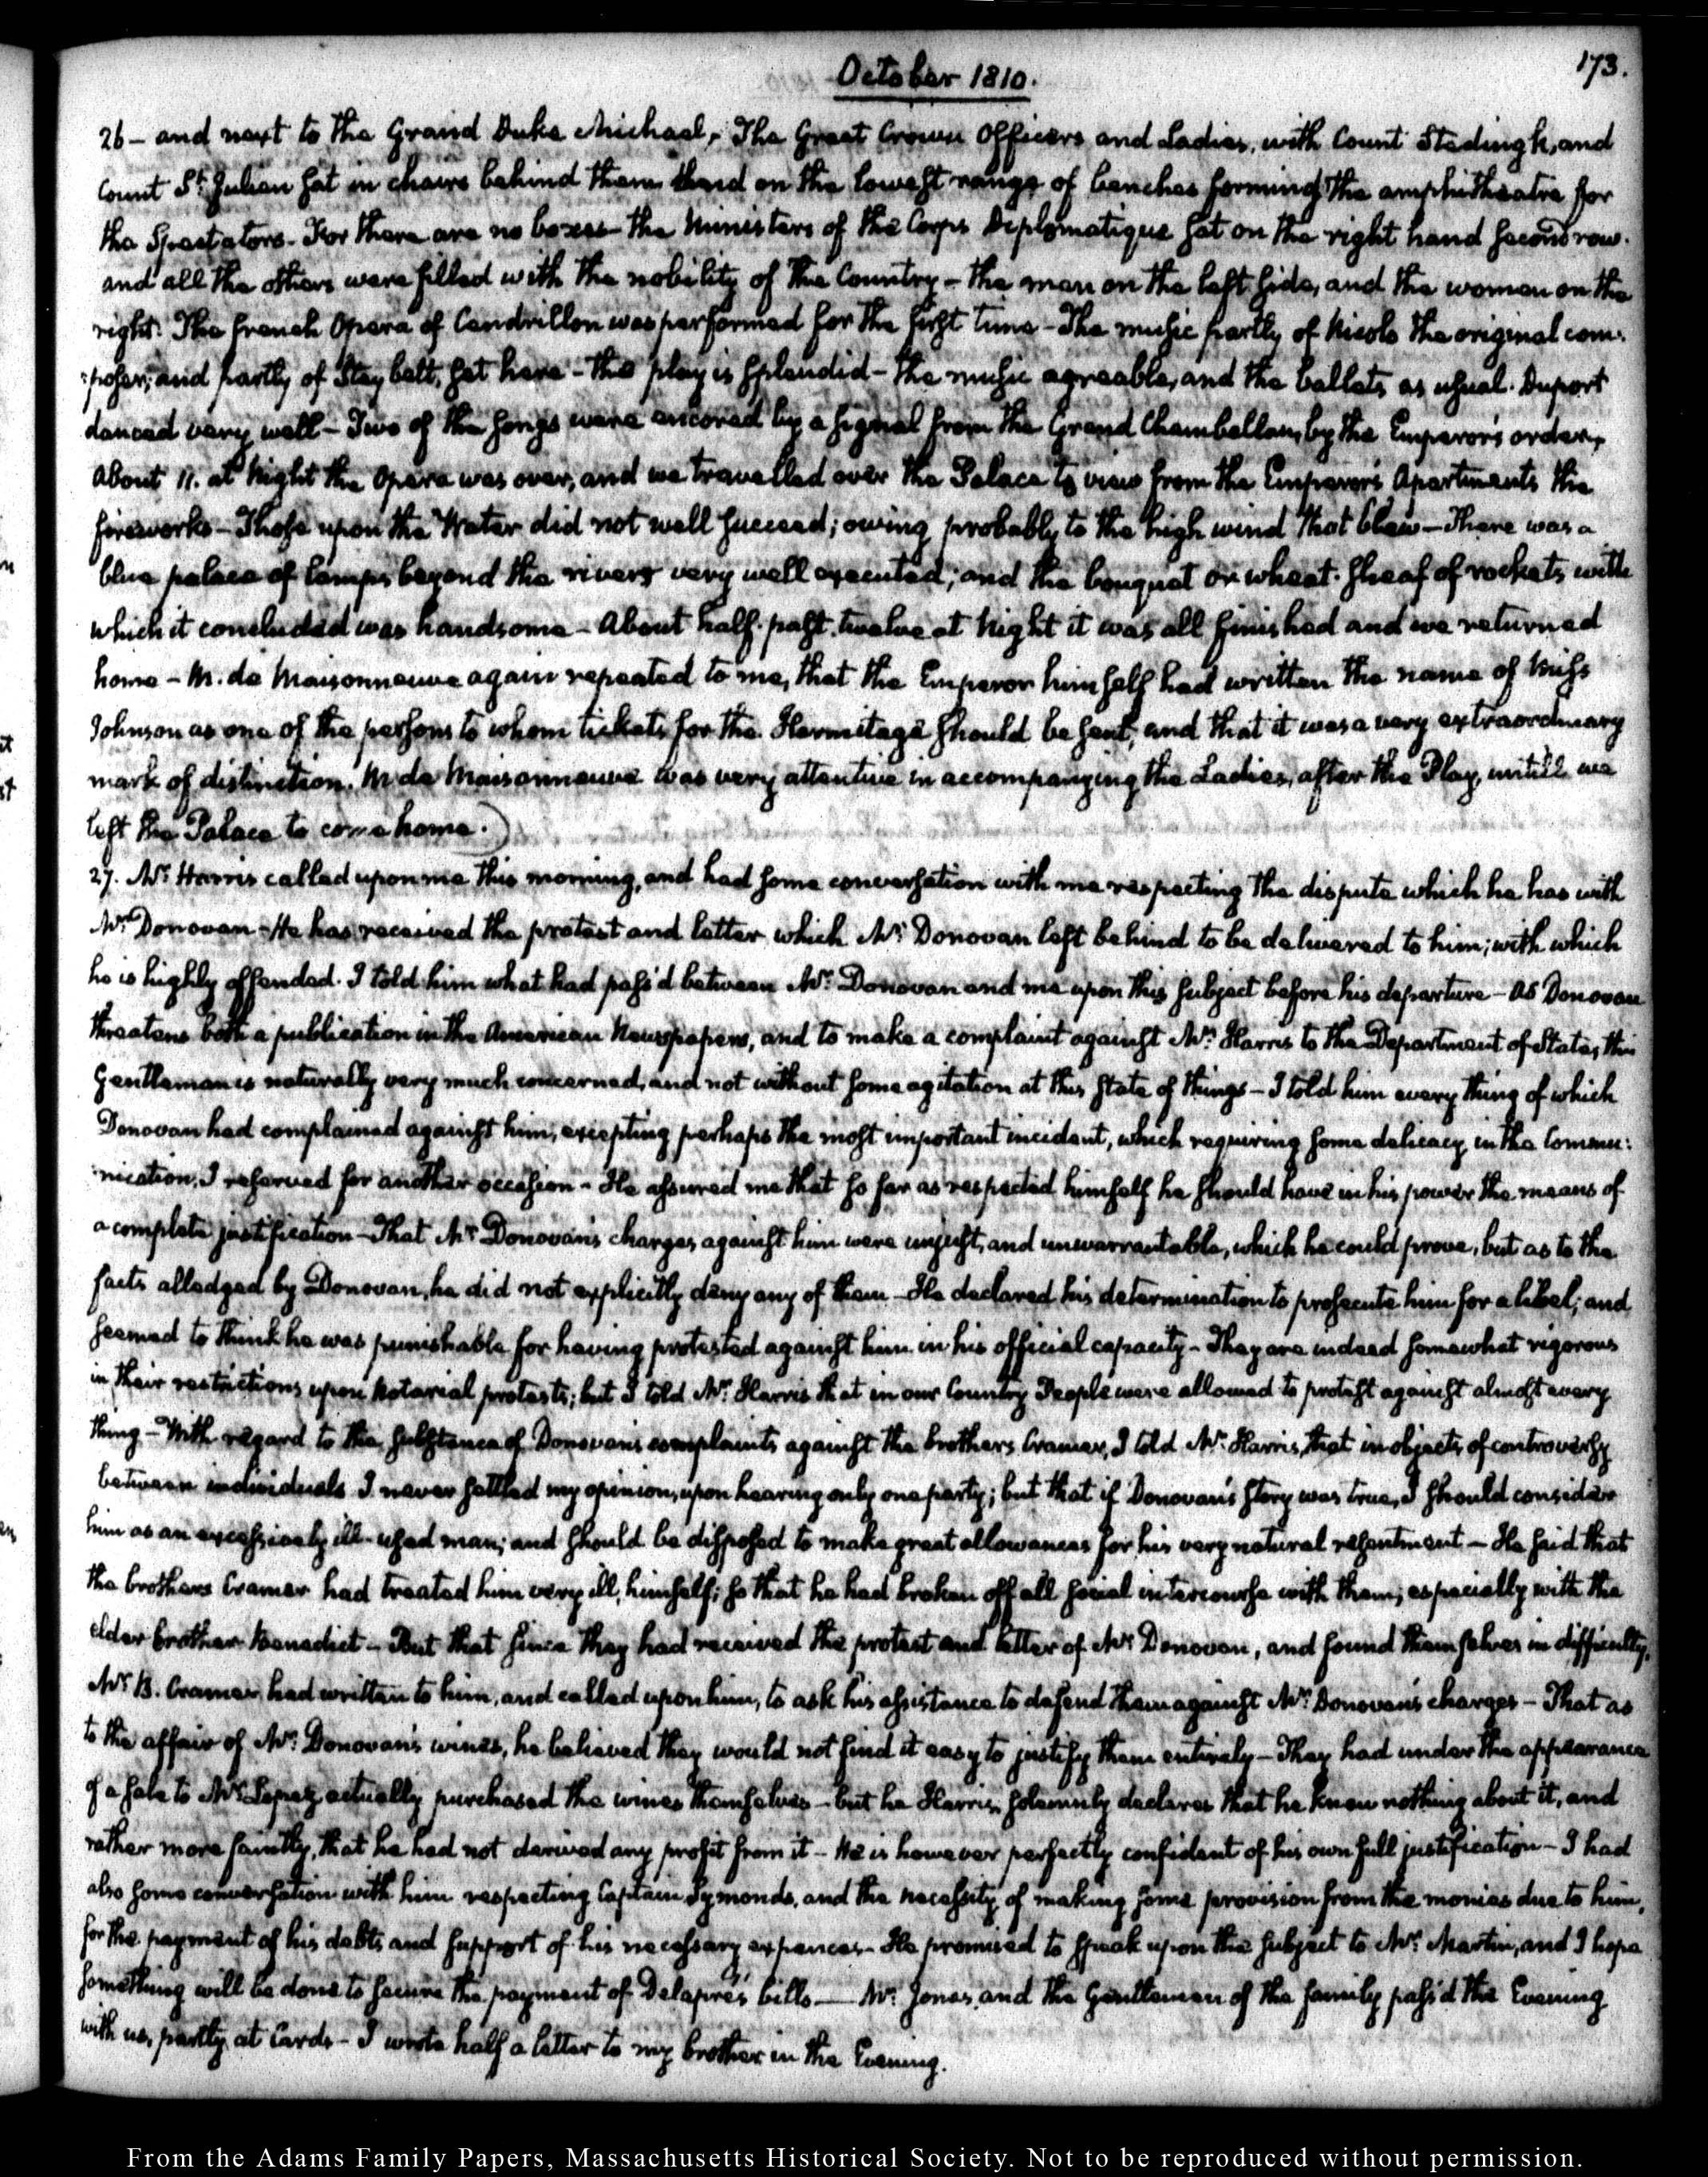 October 1810.
173.
26 – and next to the Grand Duke Michael, The Great Crown Officers and Ladies, with Count Stedingk, and
Count St. Julien sat in chairs behind them and on the lowest range of benches forming the amphitheatre for
the Spectators – For there are no boxes – the Ministers of the Corps Diplomatique sat on the right hand second row.
and all the others were filled with the nobility of the Country – the men on the left side, and the women on the
right. The french Opera of Cendrillon was performed for the first time – The music partly of Nicolo the original com-
poser, and partly of Steybelt, set here – the play is splendid – the music agreeable, and the ballets as usual. Duport
danced very well – Two of the songs were encored by a signal from the Grand Chambellan, by the Emperor's order,
About 11. at Night the Opera was over, and we travelled over the Palace to view from the Emperor's Apartments the
fireworks – Those upon the Water did not well succeed; owing probably to the high wind that blew – There was a
blue palace of lamps beyond the river very well executed; and the bouquet or wheat-sheaf of rockets with
which it concluded was handsome – About half-past twelve at Night it was all finished and we returned
home – M. de Maisonneuve again repeated to me, that the Emperor himself had written the name of Miss
Johnson as one of the persons to whom tickets for the Hermitage should be sent, and that it was a very extraordinary
mark of distinction. M de Maisonneuve was very attentive in accompanying the Ladies, after the Play, untill we
left the Palace to come home.)
27. Mr. Harris called upon me this morning, and had some conversation with me respecting the dispute which he has with
Mr. Donovan – He has received the protest and letter which Mr. Donovan left behind to be delivered to him; with which
he is highly offended. I told him what had pass'd between Mr. Donovan and me upon this subject before his departure – As Donovan
threatens both a publication in the American Newspapers, and to make a complaint against Mr. Harris to the Department of State, this
Gentleman is naturally very much concerned, and not without some agitation at this state of things – I told him every thing of which
Donovan had complained against him, excepting perhaps the most important incident, which requiring some delicacy in the Commu-
nication, I reserved for another occasion – He assured me that so far as respected himself he should have in his power the means of
a complete justification – That Mr. Donovan's charges against him were unjust, and unwarrantable, which he could prove, but as to the
facts alledged by Donovan, he did not explicitly deny any of them – He declared his determination to prosecute him for a libel; and
seemed to think he was punishable for having protested against him in his official capacity – They are indeed somewhat rigorous
in their restrictions upon Notarial protests; but I told Mr. Harris that in our Country People were allowed to protest against almost every
thing – With regard to the substance of Donovan's complaints against the brothers Cramer, I told Mr. Harris, that in objects of controversy
between individuals I never settled my opinion, upon hearing only one party; but that if Donovan's story was true, I should consider
him as an excessively ill-used man; and should be disposed to make great allowances for his very natural resentment – He said that
the brothers Cramer had treated him very ill, himself; so that he had broken off all social intercourse with them; especially with the
elder brother Benedict – But that since they had received the protest and letter of Mr. Donovan, and found themselves in difficulty,
Mr. B. Cramer had written to him, and called upon him, to ask his assistance to defend them against Mr. Donovan's charges – That as
to the affair of Mr. Donovan's wines, he believed they would not find it easy to justify them entirely – They had under the appearance
of a sale to Mr. Lopez, actually purchased the wines themselves – but he Harris, solemnly declares that he knew nothing about it, and
rather more faintly, that he had not derived any profit from it – He is however perfectly confident of his own full justification – I had
also some conversation with him respecting Captain Symonds, and the necessity of making some provision from the monies due to him,
for the payment of his debts and support of his necessary expences – He promised to speak upon the subject to Mr. Martin, and I hope
something will be done to secure the payment of Delapré's bills — Mr. Jones, and the Gentlemen of the family pass'd the Evening
with us, partly at Cards – I wrote half a letter to my brother in the Evening.
From the Adams Family Papers, Massachusetts Historical Society. Not to be reproduced without permission.